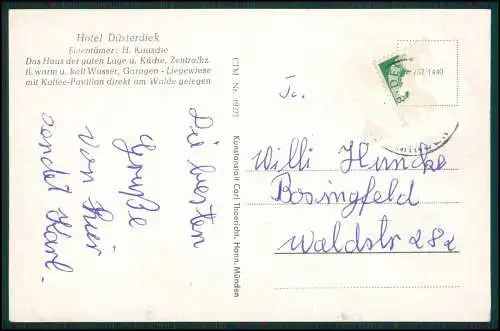 Hotel Düsterdiek
Eigentümer: H. Kausche
Das Haus der guten Lage u. Küche, Zentralhz.
fl. warm u. kalt Wasser, Garagen - Liegewiese
mit Kaffee-Pavillon direkt am Walde gelegen
Die besten
Grüße
von hier
sendet Karl.
CTM Nr. 19221 Kunstanstalt Carl Thoericht, Hann. Münden
707/1440
Willi Huncke
Bosingfeld
Waldstr 282